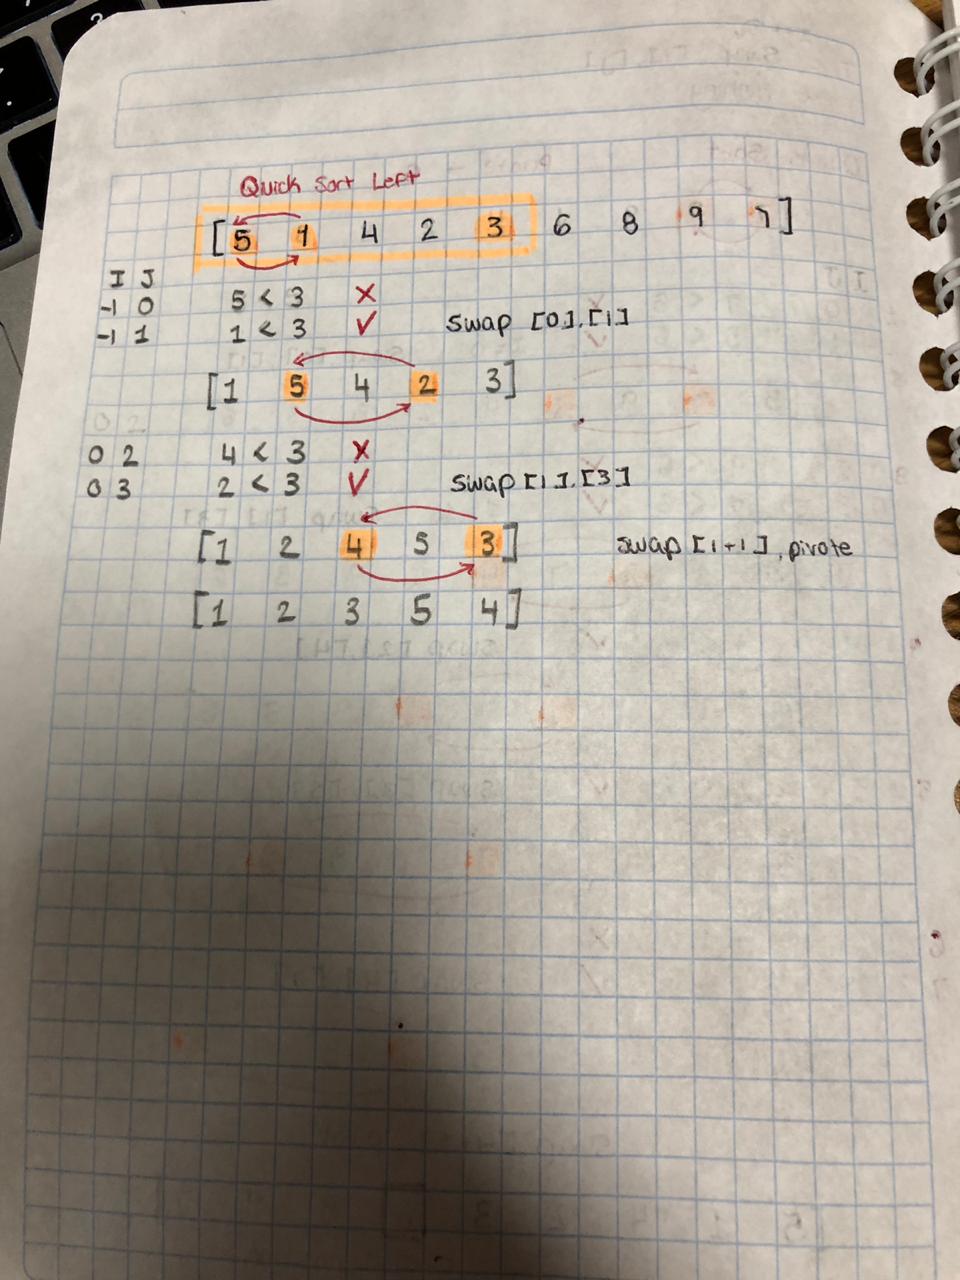 Quick Sort Left
[5 1 4 2 3 6 8 9 7]
I J
-1 0 5 < 3 ✗
-1 1 1 < 3 ✓ swap [0],[1]
[1 5 4 2 3]
0 2 4 < 3 ✗
0 3 2 < 3 ✓ swap [1],[3]
[1 2 4 5 3] swap [i+1], pivote
[1 2 3 5 4]